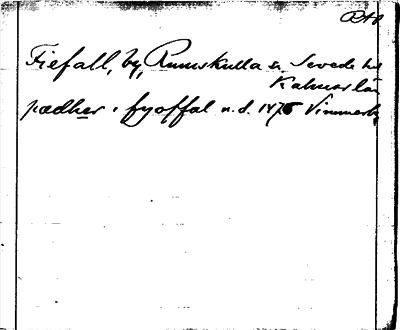 RAp
Fiefall, by, Rumskulla sn Sevede hd
Kalmar län
pædher i fyoffal u. d. 1478 Vimmerby